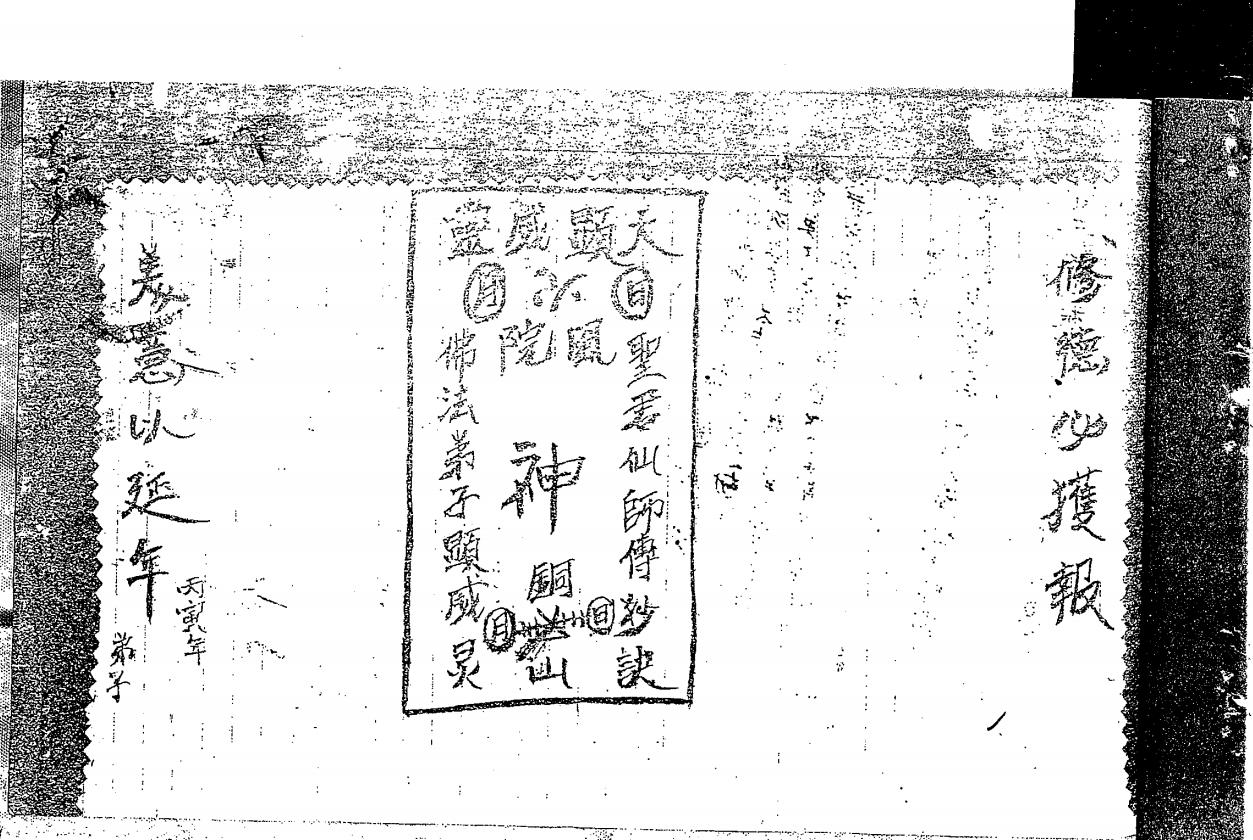 修德必獲報
天顯威靈
日 月
鳳院
聖君仙師傳妙訣
神
銅 山
日 月
佛法弟子顯威灵
善意以延年
丙寅年
弟子